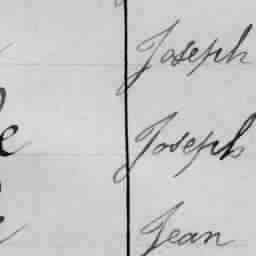 Joseph
Joseph
Jean